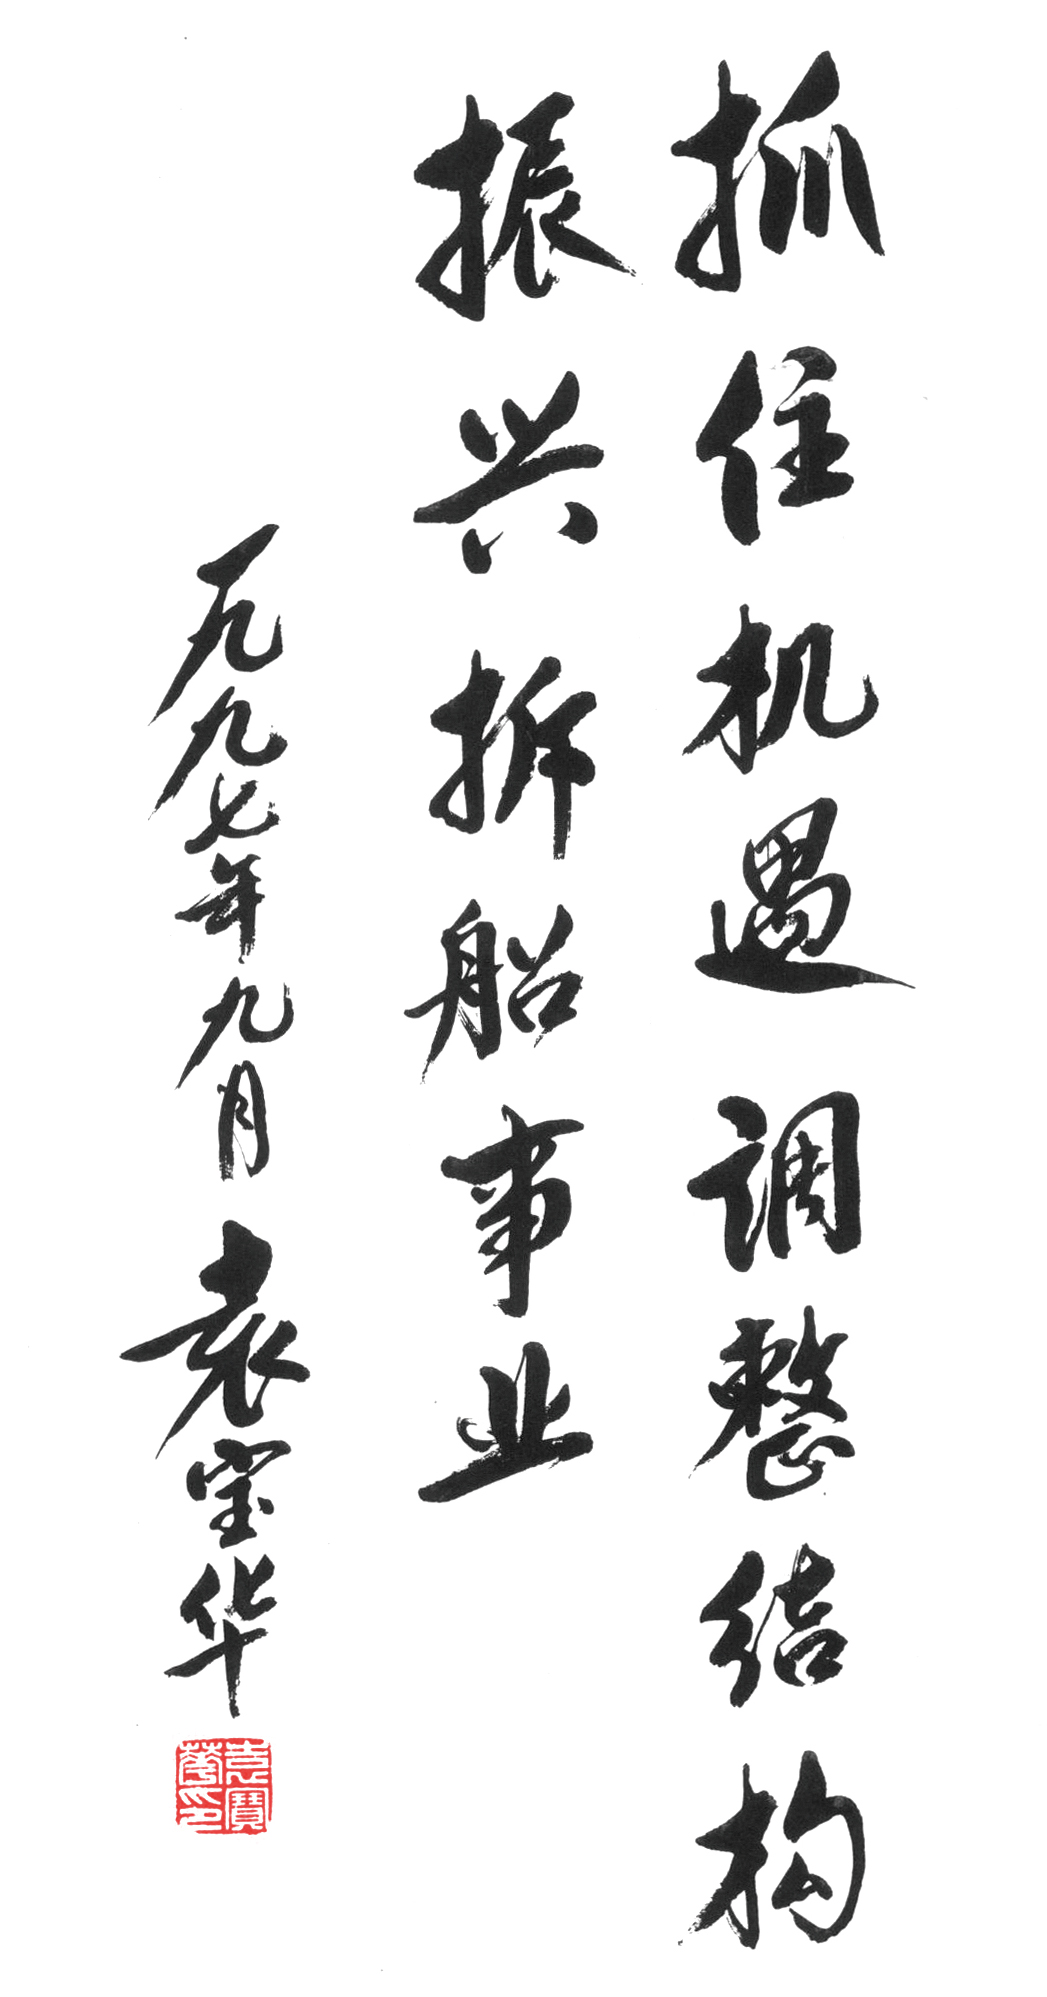 抓住机遇调整结构
振兴拆船事业
一九九七年九月 袁宝华
袁寶華印